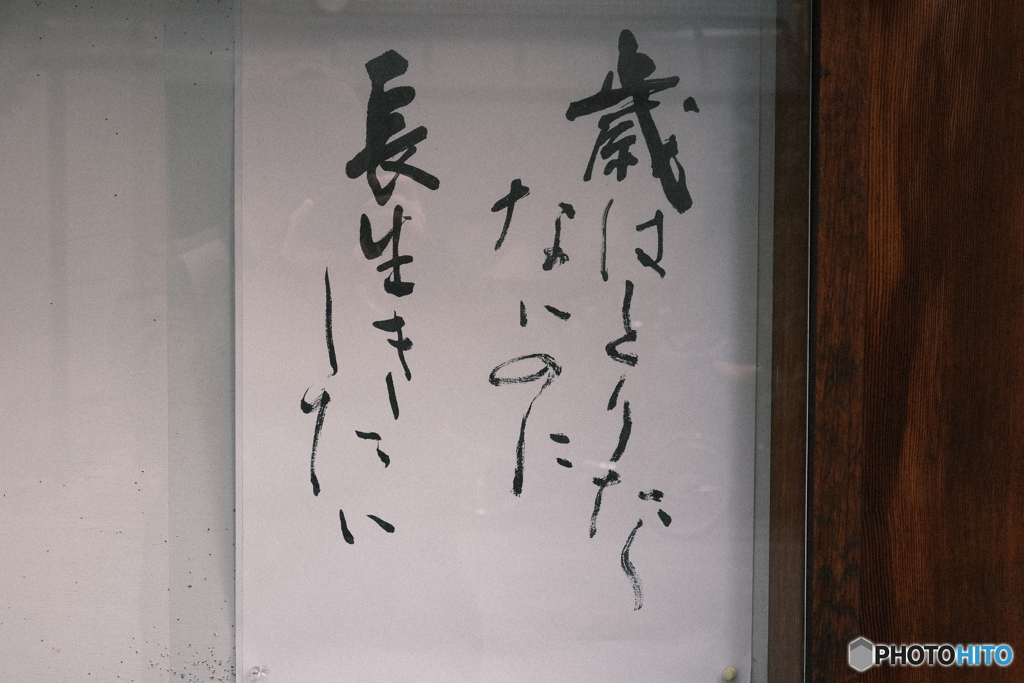 歳はとりたく
ないのに
長生きしたい
PHOTOHITO